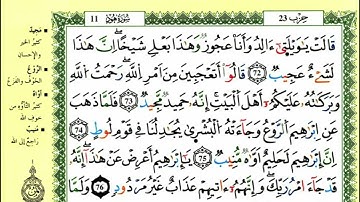 حزب 23
سورة هود 11
قَالَتْ يَٰوَيْلَتَىٰٓ ءَأَلِدُ وَأَنَا۠ عَجُوزٌ وَهَٰذَا بَعْلِى شَيْخًا إِنَّ هَٰذَا
لَشَىْءٌ عَجِيبٌ 72 قَالُوٓا۟ أَتَعْجَبِينَ مِنْ أَمْرِ ٱللَّهِ رَحْمَتُ ٱللَّهِ
وَبَرَكَٰتُهُۥ عَلَيْكُمْ أَهْلَ ٱلْبَيْتِ إِنَّهُۥ حَمِيدٌ مَّجِيدٌ 73 فَلَمَّا ذَهَبَ
عَنْ إِبْرَٰهِيمَ ٱلرَّوْعُ وَجَآءَتْهُ ٱلْبُشْرَىٰ يُجَٰدِلُنَا فِى قَوْمِ لُوطٍ 74
إِنَّ إِبْرَٰهِيمَ لَحَلِيمٌ أَوَّٰهٌ مُّنِيبٌ 75 يَٰٓإِبْرَٰهِيمُ أَعْرِضْ عَنْ هَٰذَآ إِنَّهُۥ
قَدْ جَآءَ أَمْرُ رَبِّكَ وَإِنَّهُمْ ءَاتِيهِمْ عَذَابٌ غَيْرُ مَرْدُودٍ 76 وَلَمَّا
مَجِيدٌ
كثير الخير
والإحسان
الرَّوْعُ
الخوف والفزع
أوّاه
كثير التأوّه من
خوف الله
مُنيب
راجع إلى الله